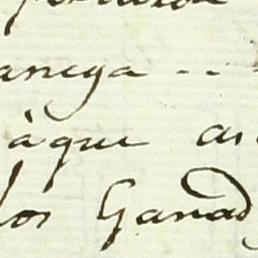 anega ..
à que as
los Ganad